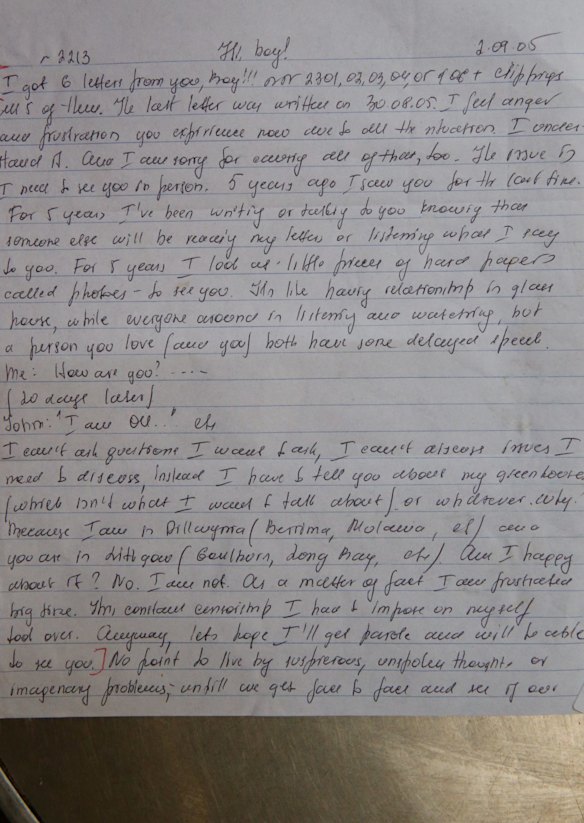 r 2213 Hi, boy! 2.09.05
I got 6 letters from you, boy!!! 2301, 02, 03, 04, 05 + 06 + clippings
in 5 of them. The last letter was written on 30.08.05. I feel anger
and frustration you experience now due to all the situation. I under-
stand it. And I am sorry for causing all of that, too. The issue is
I need to see you in person. 5 years ago I saw you for the last time.
For 5 years I've been writing or talking to you knowing that
someone else will be reading my letters or listening what I say
to you. For 5 years I look at little pieces of hard papers
called photoes - to see you. It's like having relationship in glass
house, while everyone around is listening and watching, but
a person you love (and you) both have some delayed speech.
Me: How are you? ....
(20 days later)
John: "I am OK..." etc
I can't ask questions I want to ask, I can't discuss issues I
need to discuss, instead I have to tell you about my greenhouse
(which isn't what I want to talk about) or whatever. Why.
Because I am in Dillwynia (Berrima, Mulawa, etc) and
you are in Lithgow (Goulburn, Long Bay, etc). Am I happy
about it? No. I am not. As a matter of fact I am frustrated
big time. This constant censorship I had to impose on myself
too over. Anyway, lets hope I'll get parole and will be able
to see you.] No point to live by suspicions, unspoken thoughts or
imagenary problems, - untill we get face to face and see if our